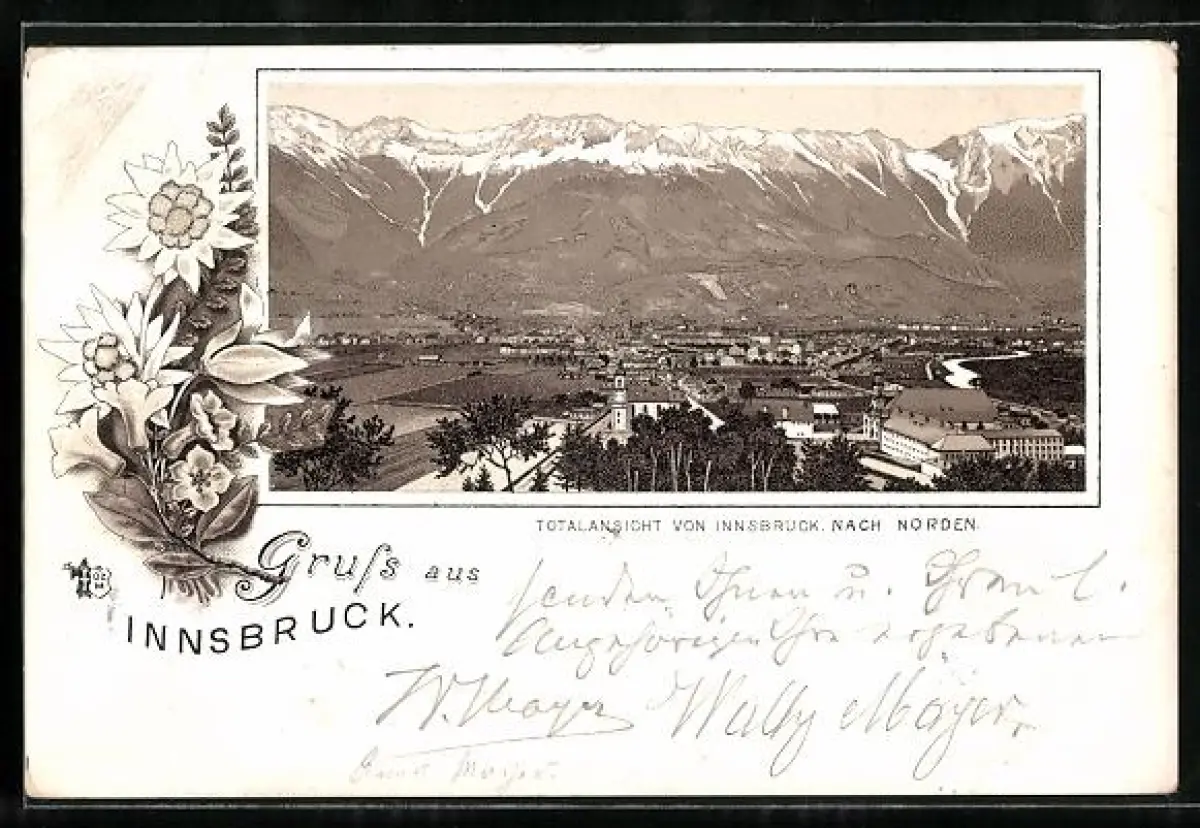 TOTALANSICHT VON INNSBRUCK. NACH NORDEN.
Gruſs aus
INNSBRUCK.
senden Ihnen u. Ihren l.
Angehörigen Ihre ergebenen
W. Mayer Wally Mayer.
Mayer.